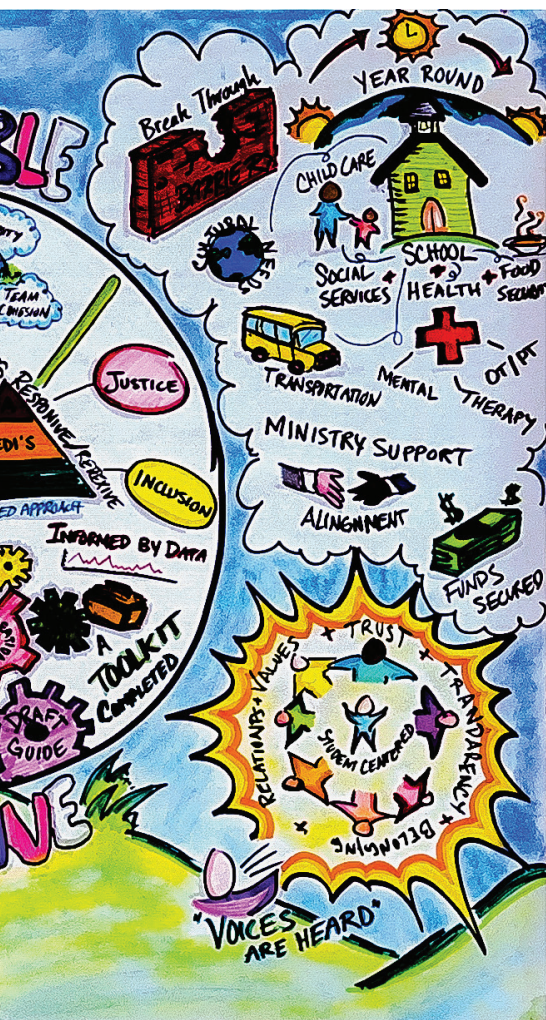 BLE
TEAM
RESPONSIVE/REFLEXIVE
EDI'S
ED APPROACH
JUSTICE
INCLUSION
INFORMED BY DATA
A
TOOLKIT
COMPLETED
DRAFT
GUIDE
NE
Break Through
YEAR ROUND
CHILD CARE
CULTURAL NEEDS
SCHOOL
SOCIAL + HEALTH + FOOD
SERVICES
TRANSPORTATION
MENTAL
OT/PT
THERAPY
MINISTRY SUPPORT
ALINGNMENT
$ $
FUNDS
SECURED
RELATIONSHIPS + VALUES + TRUST + TRANPARENCY + BELONGING +
STUDENT CENTERED
"VOICES
ARE HEARD"